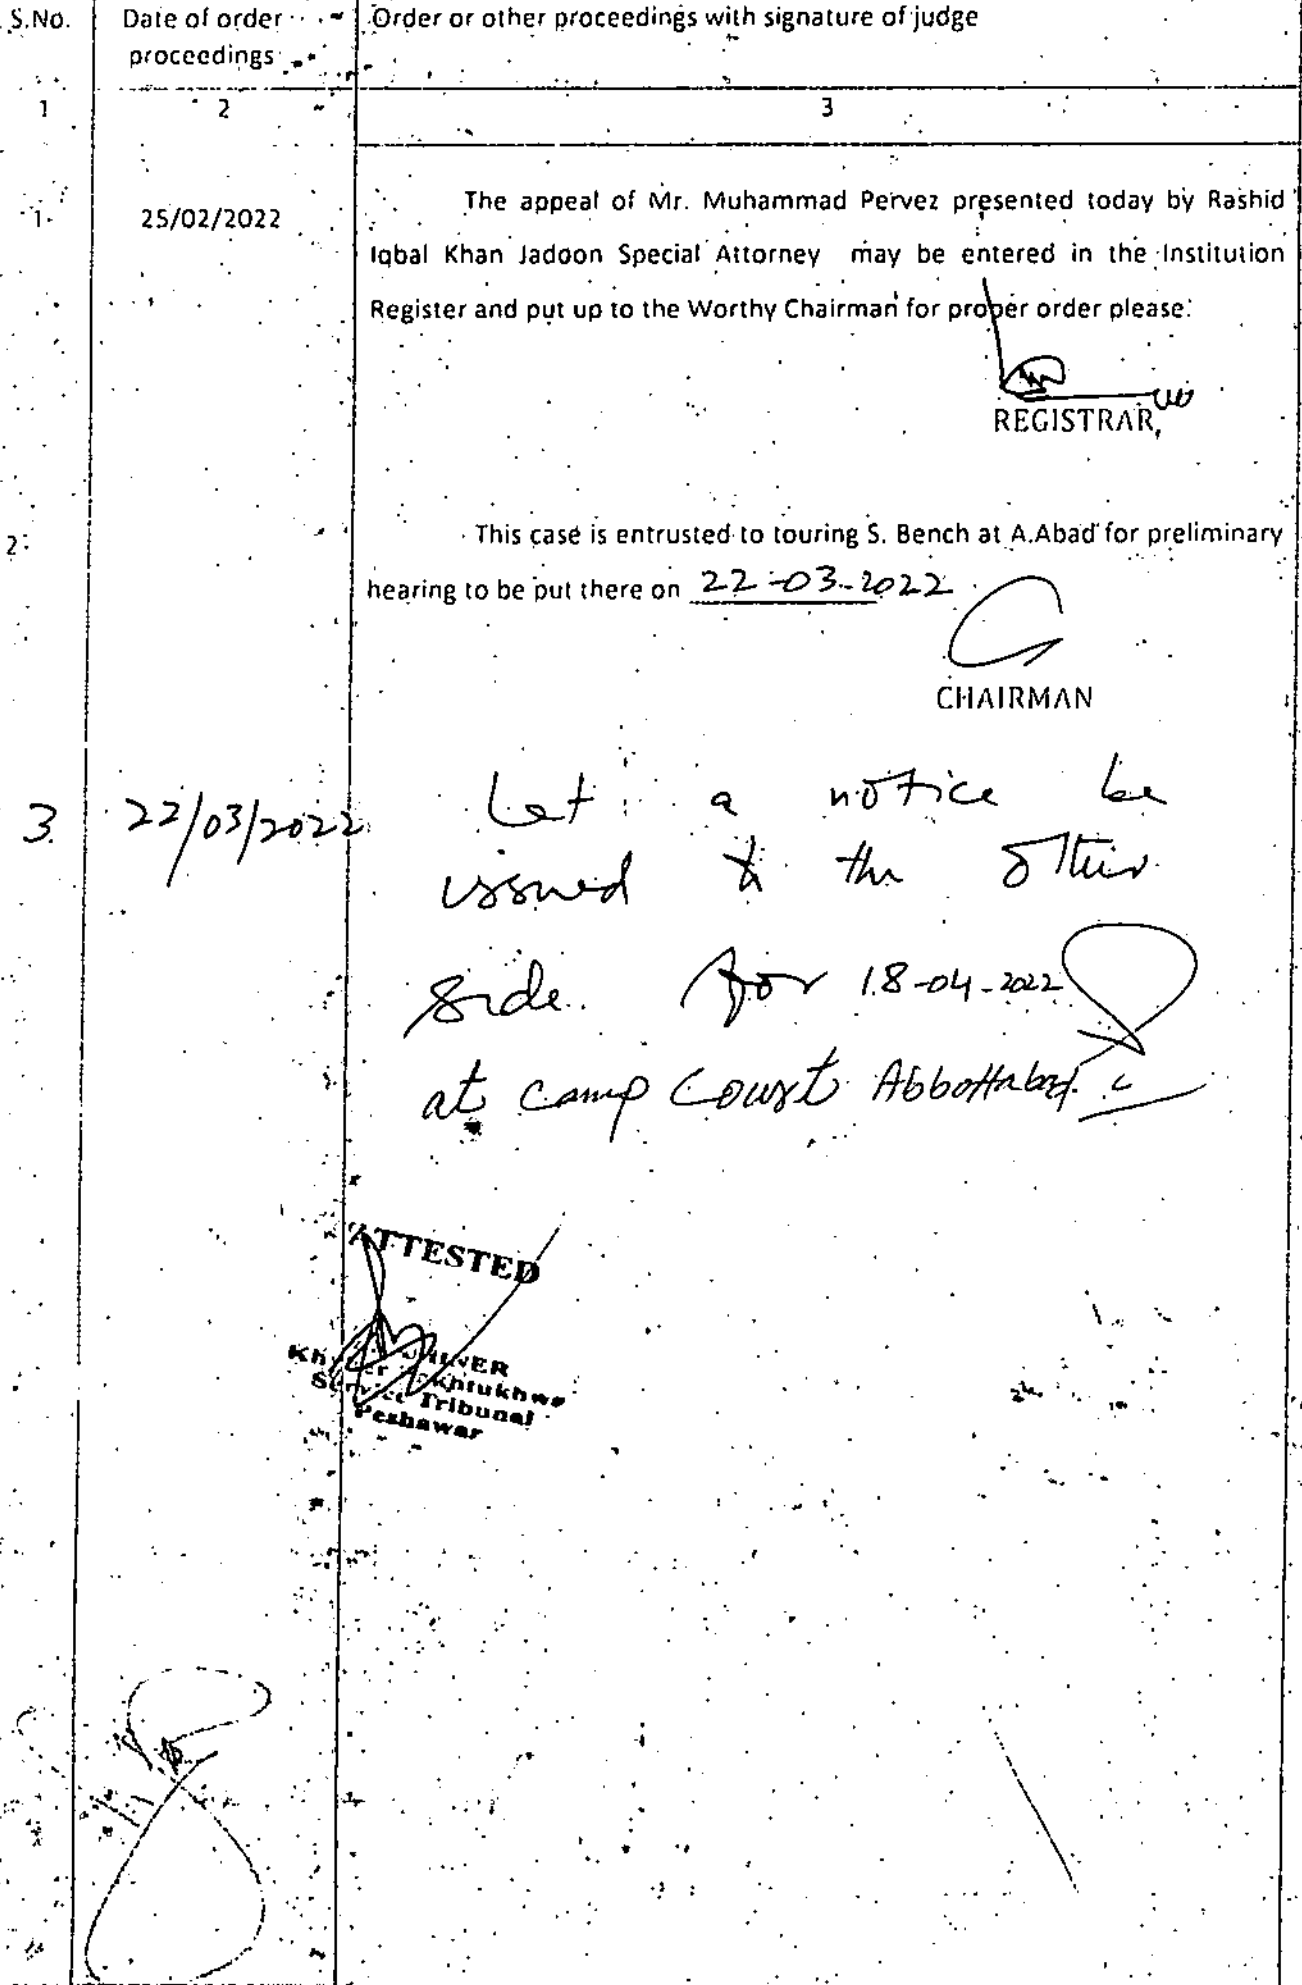 S.No.
Date of order
proceedings
Order or other proceedings with signature of judge
1
2
3
1.
25/02/2022
The appeal of Mr. Muhammad Pervez presented today by Rashid
Iqbal Khan Jadoon Special Attorney may be entered in the Institution
Register and put up to the Worthy Chairman for proper order please.
REGISTRAR,
2.
This case is entrusted to touring S. Bench at A.Abad for preliminary
hearing to be put there on 22-03-2022
CHAIRMAN
3.
22/03/2022
Let a notice be
issued to the other
side for 18-04-2022
at Camp Court Abbottabad.
ATTESTED
Service Tribunal
Peshawar